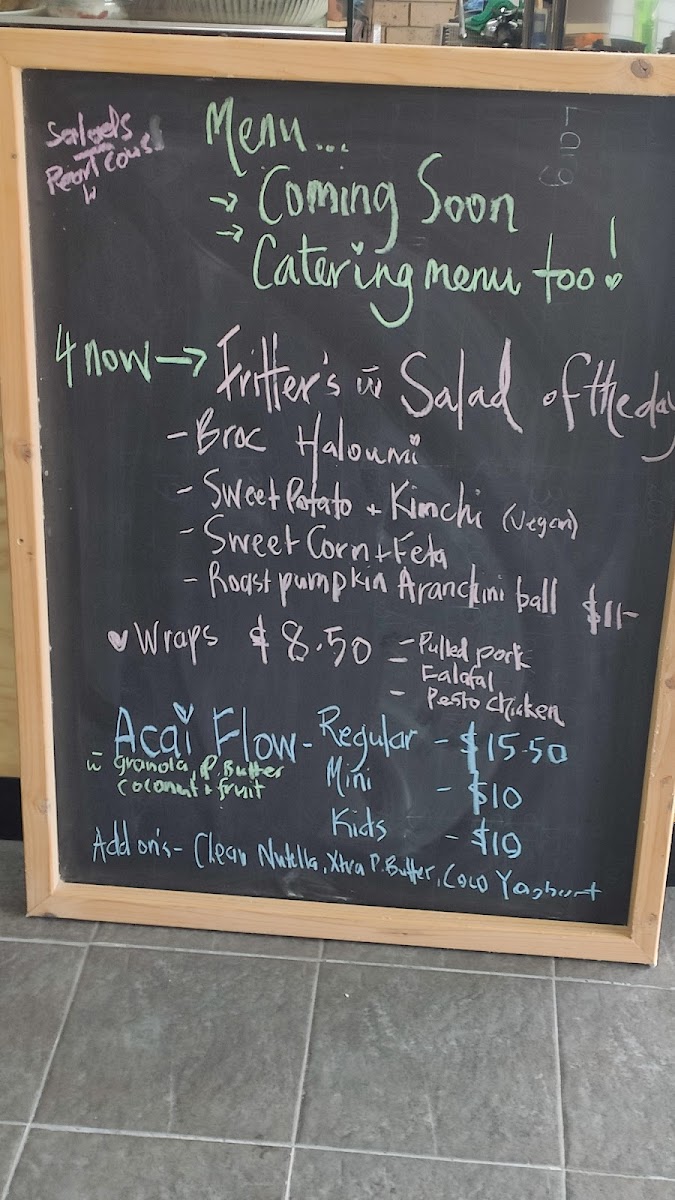 Salads
Pearl Cous
w
Menu...
→ Coming Soon
→ Catering menu too!
4 now → Fritter's w̄ Salad of the day
- Broc Haloumi
- Sweet Potato + Kimchi (Vegan)
- Sweet Corn + Feta
- Roast pumpkin Aranchini ball $11-
♥ Wraps $8.50
- Pulled pork
- Falafal
- Pesto Chicken
Acai Flow - Regular - $15.50
w̄ granola, P. Butter
coconut + fruit
Mini - $10
Kids - $10
Add on's - Clean Nutella, Xtra P. Butter, Coco Yoghurt